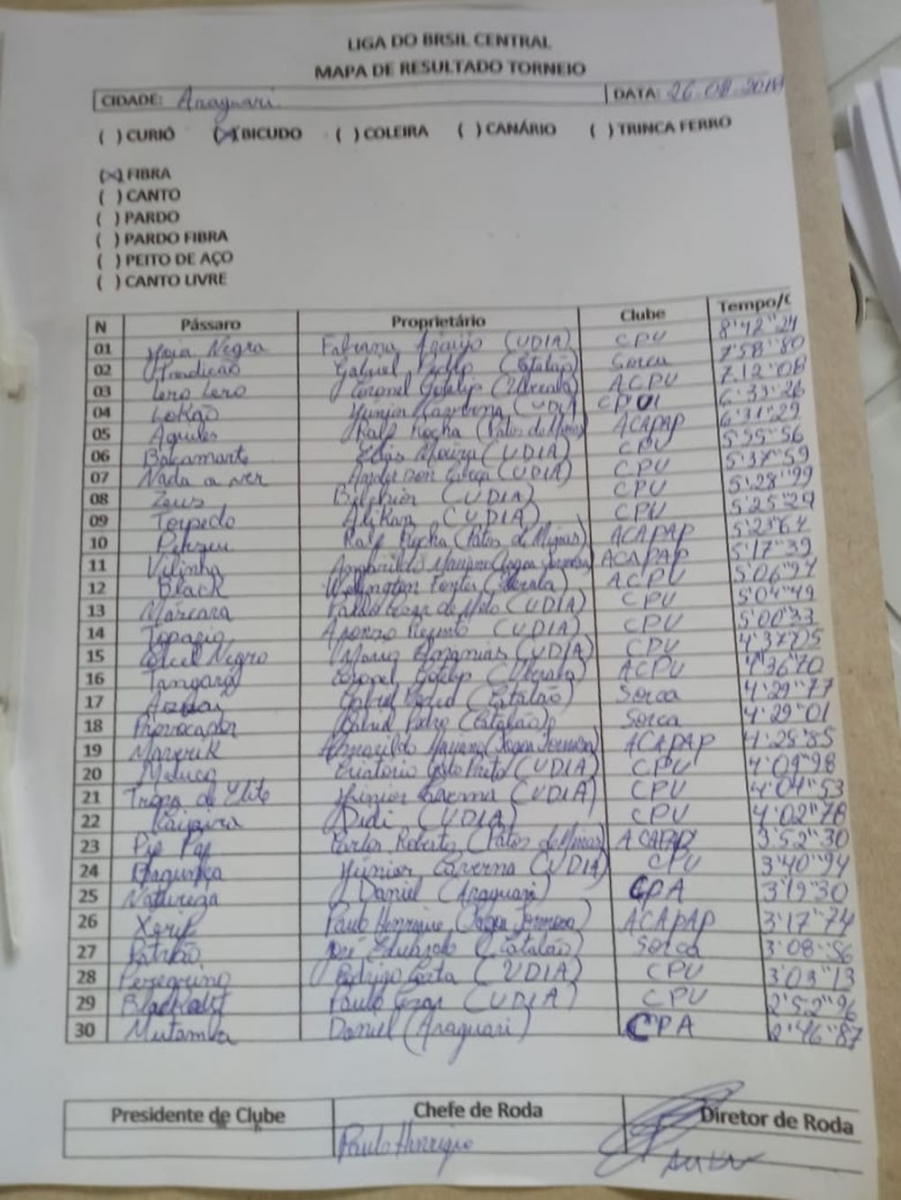 LIGA DO BRSIL CENTRAL
MAPA DE RESULTADO TORNEIO
CIDADE: Araguari DATA: 26.08.2018
( ) CURIÓ (X) BICUDO ( ) COLEIRA ( ) CANÁRIO ( ) TRINCA FERRO
(X) FIBRA
( ) CANTO
( ) PARDO
( ) PARDO FIBRA
( ) PEITO DE AÇO
( ) CANTO LIVRE
N Pássaro Proprietário Clube Tempo/C
01 Negra Fabiana Araújo (UDIA) CPU 8'42"24
02 Tradicão Gabriel (Catalão) Sorca 7'58"80
03 Lero Lero Coronel (Uberaba) ACPU 7.12"08
04 Lokão Júnior Caverna (UDIA CPU 6'33"26
05 Aquiles Ralf Rocha (Patos de Minas) ACAPAP 6'31"29
06 Bacamarte Elias Moura (UDIA) CPU 5'55"56
07 Nada a ver Anderson (UDIA) CPU 5'37"59
08 Zeus Belchior (UDIA) CPU 5'28"99
09 Torpedo (UDIA) CPU 5'25"29
10 Ralf Rocha (Patos de Minas) ACAPAP 5'23"64
11 Vilinha Amarildo Mariano (Lagoa Formosa) ACAPAP 5'17"39
12 Black Welington Fontes (Uberaba) ACPU 5'06"97
13 Máscara Paulo Cezar de Melo (UDIA) CPU 5'04"49
14 Topazio (UDIA) CPU 5'00"33
15 Negro (UDIA) CPU 4'37"05
16 Tangará Coronel (Uberaba) ACPU 4'36"70
17 Gabriel (Catalão) Sorca 4'29"77
18 Provocador Gabriel Pedro (Catalão) Sorca 4'29"01
19 Maverik Amarildo Mariano (Lagoa Formosa) ACAPAP 4'25"85
20 Maluco Criatorio Galo Preto (UDIA) CPU 4'09"98
21 Tropa de Elite Júnior Caverna (UDIA) CPU 4'04"53
22 Caipira Didi (UDIA) CPU 4'02"78
23 Carlos Roberto (Patos de Minas) ACAPAP 3'52"30
24 Bagunça Júnior Caverna (UDIA) CPU 3'40"94
25 Natureza Daniel (Araguari) CPA 3'19"30
26 Xerife Paulo Henrique (Lagoa Formosa) ACAPAP 3'17"74
27 Patrão José Eduardo (Catalão) Sorca 3'08"56
28 Peregrino Rodrigo Costa (UDIA) CPU 3'03"13
29 Paulo Cezar (UDIA) CPU 2'52"96
30 Mutamba Daniel (Araguari) CPA 2'46"87
Presidente de Clube Chefe de Roda Diretor de Roda
Paulo Henrique